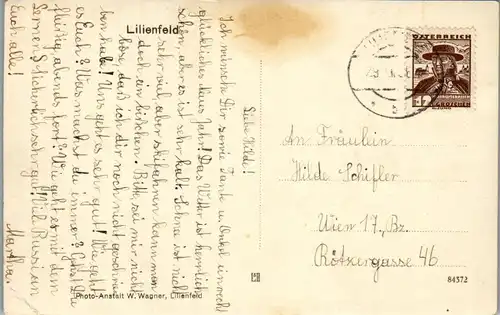 Lilienfeld
Liebe Hilde!
Ich wünsche Dir sowie Tante u. Onkel ein recht
glückliches neues Jahr! Das Wetter ist herrlich
schön, aber es ist sehr kalt. Schnee ist nicht
sehr viel, aber skifahren kann man
doch ein bisschen. Bitte, sei mir nicht
böse, daß ich dir noch nicht geschrie-
ben habe! Uns geht es sehr gut! Wie geht
es Euch? Was machst du immer? Gehst Du
fleißig abends fort? Wie geht es mit dem
Lernen? Sicherlich sehr gut! Viel Bussi an
Euch alle!
Martha.
ÖSTERREICH
12
GROSCHEN
An Fräulein
Hilde Schifler
Wien 17., Bz.
Rötzergasse 46
84372
Photo-Anstalt W. Wagner, Lilienfeld